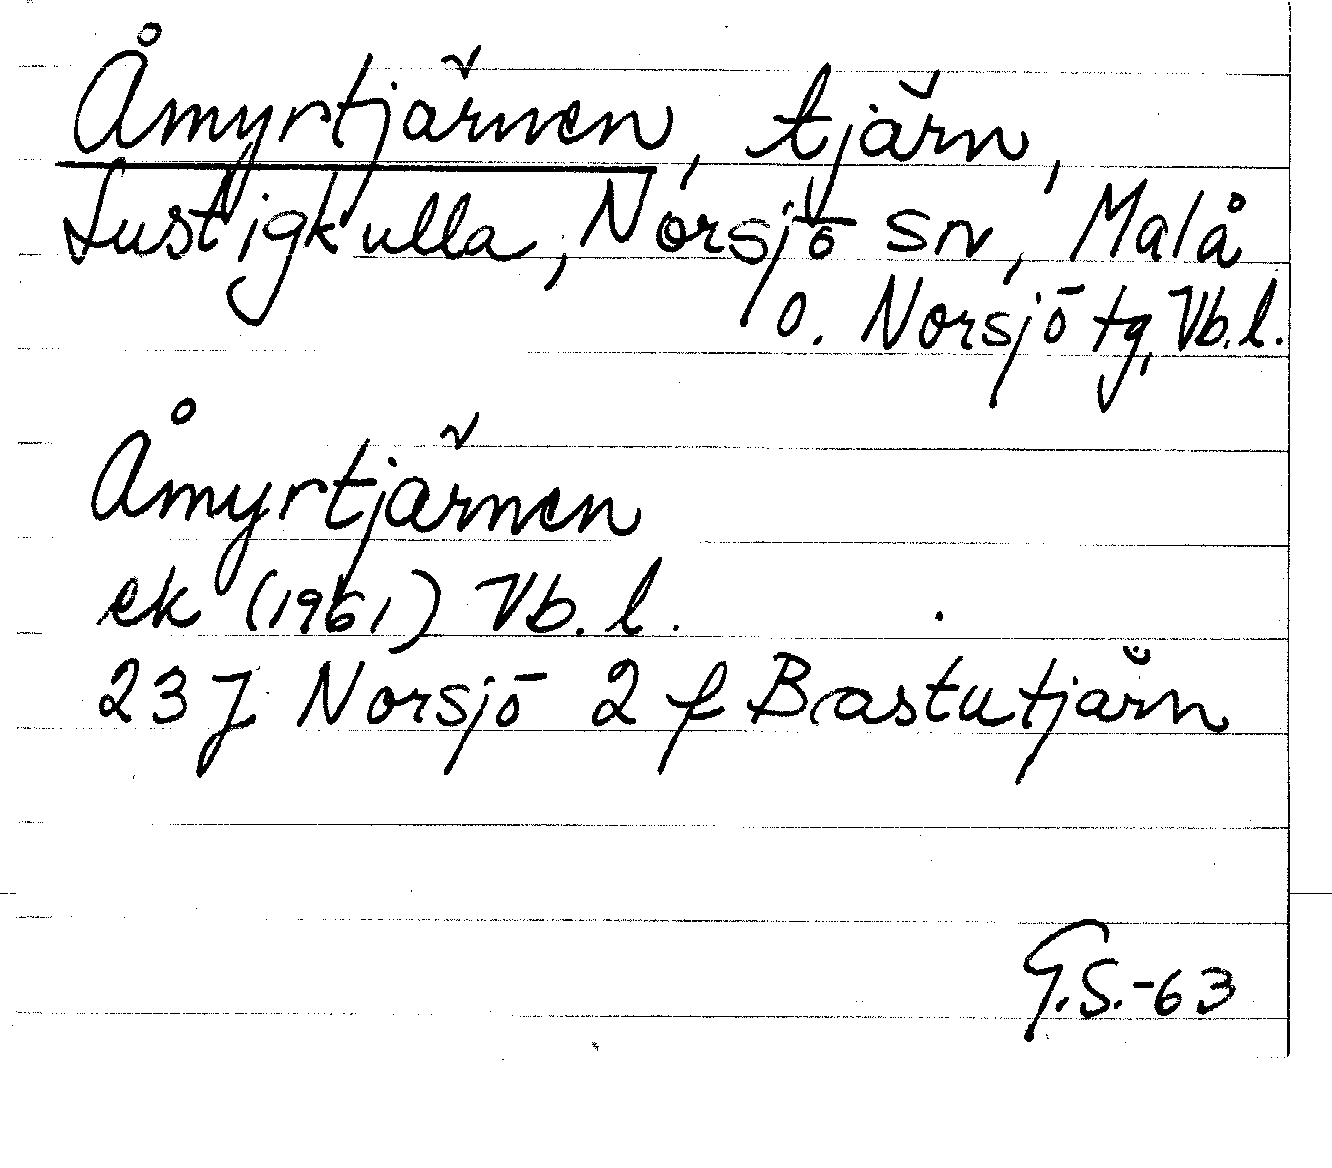 Åmyrtjärnen, tjärn,
Lustigkulla, Norsjö sn, Malå
o. Norsjö tg, Vb. l.
Åmyrtjärnen
ek (1961) Vb. l.
23 J Norsjö 2 f Brastutjärn
G.S.-63